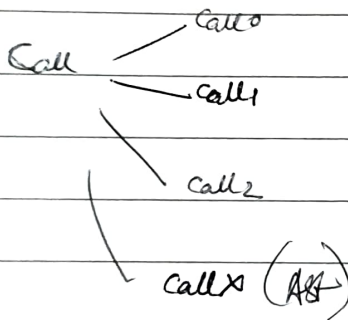 Call0
Call
Call1
Call2
CallX (AST)